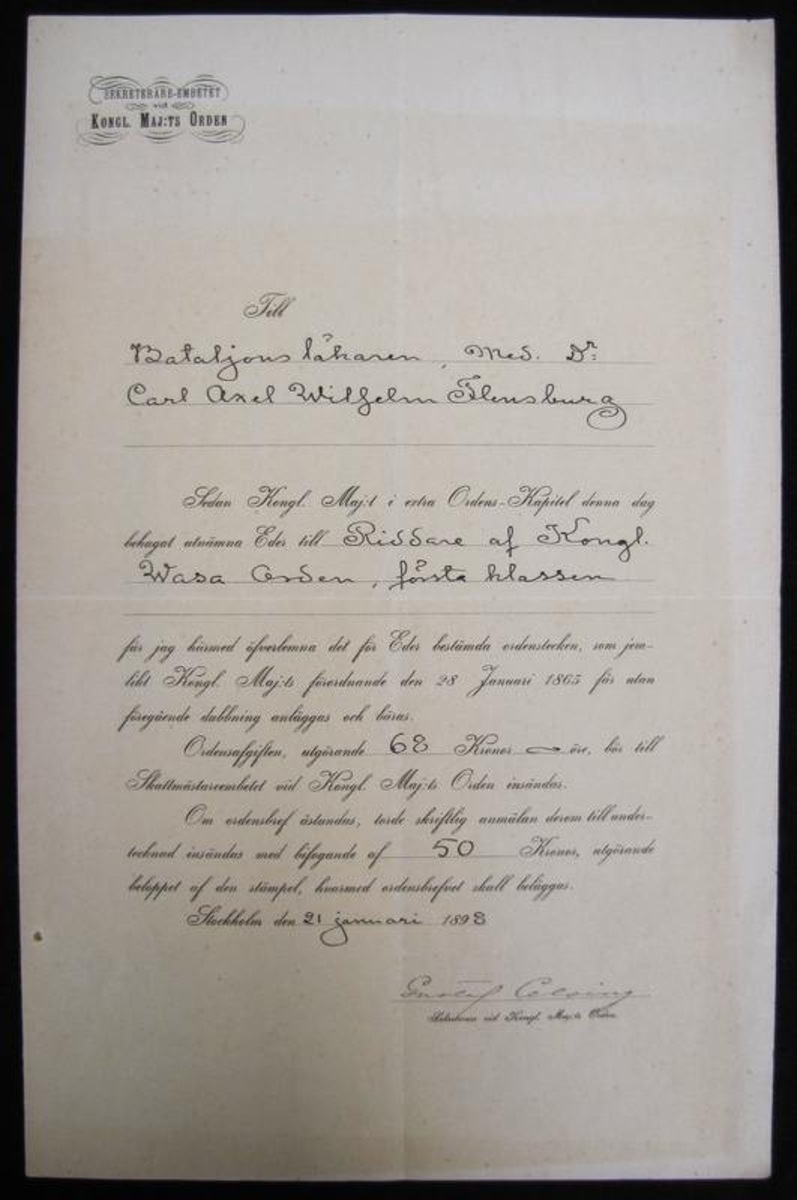 SEKRETERARE-EMBETET
vid
KONGL. MAJ:TS ORDEN
Till
Bataljonsläkaren, Med. Dr:
Carl Axel Wilhelm Flensburg
Sedan Kongl. Maj:t i extra Ordens-Kapitel denna dag
behagat utnämna Eder till Riddare af Kongl.
Wasa Orden, första klassen
får jag härmed öfverlemna det för Eder bestämda ordenstecken, som jem-
likt Kongl. Maj:ts förordnande den 28 Januari 1865 får utan
föregående dubbning anläggas och bäras.
Ordensafgiften, utgörande 68 Kronor — öre, bör till
Skattmästareembetet vid Kongl. Maj:ts Orden insändas.
Om ordensbref åstundas, torde skriftlig anmälan derom till under-
tecknad insändas med bifogande af 50 Kronor, utgörande
beloppet af den stämpel, hvarmed ordensbrefvet skall beläggas.
Stockholm den 21 januari 1898
Gustaf Celsing
Sekreterare vid Kongl. Maj:ts Orden.